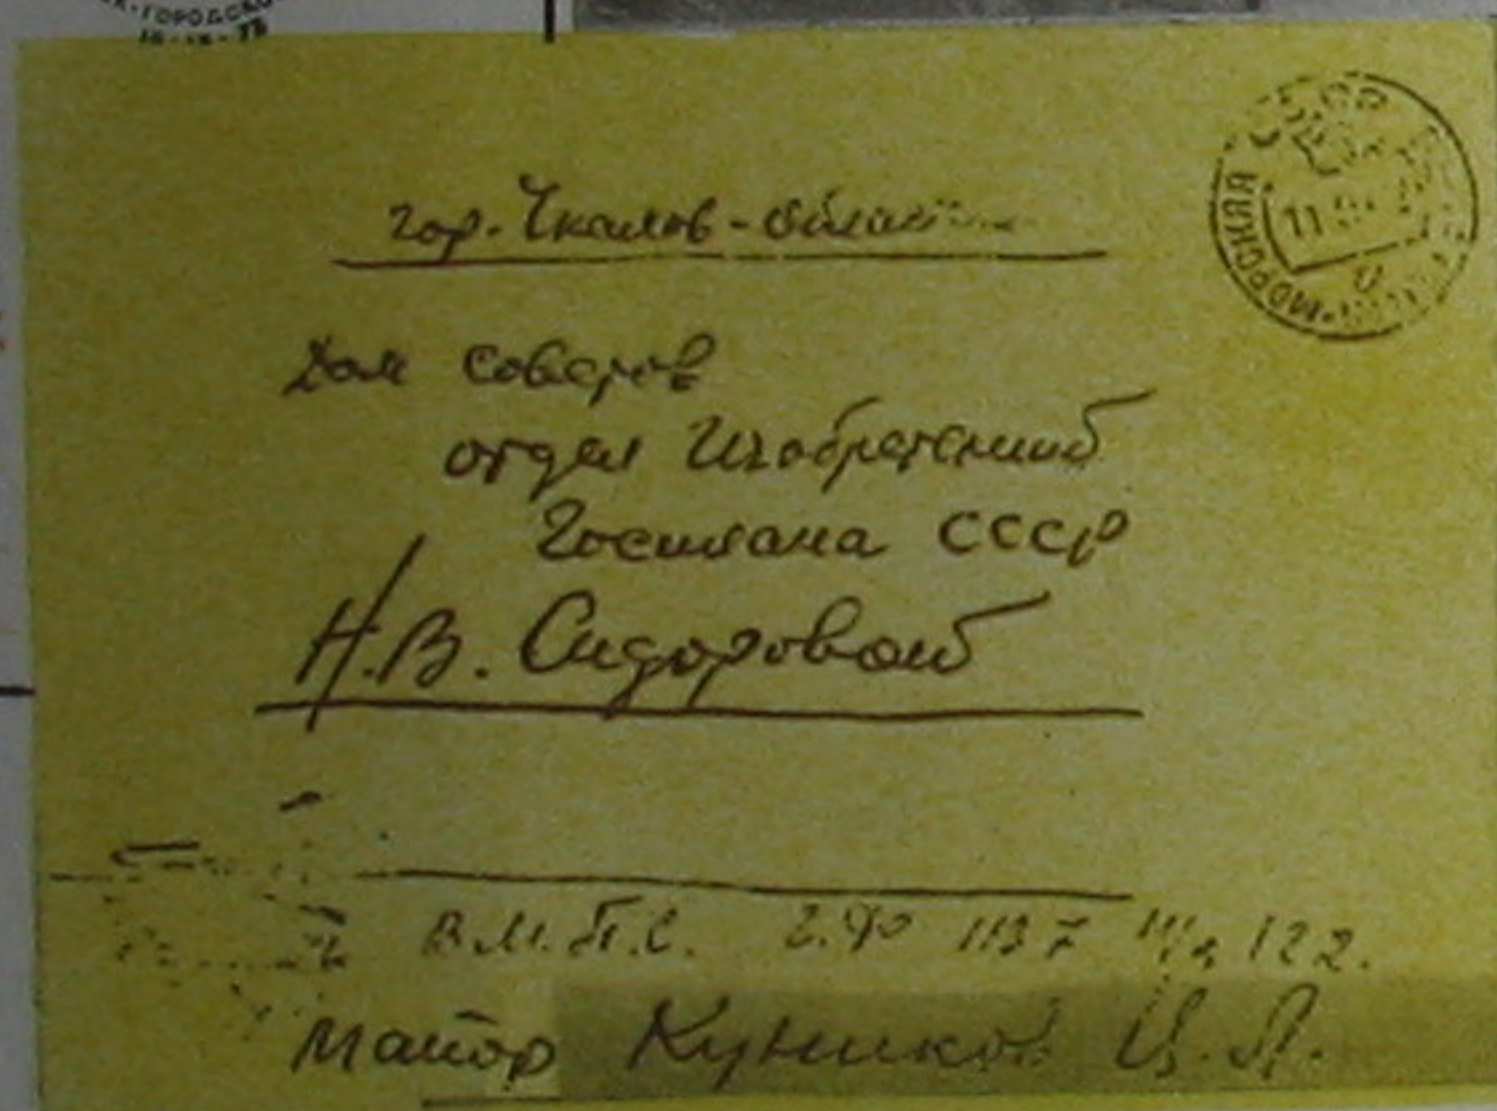 К-ГОРОДСКО
гор. Чкалов - област
Дом Советов
отдел Изобретений
Госплана СССР
Н.В. Сидоровой
МОРСКАЯ
11
В.М.П.С. 1137 122.
майор Куников Ц.Л.